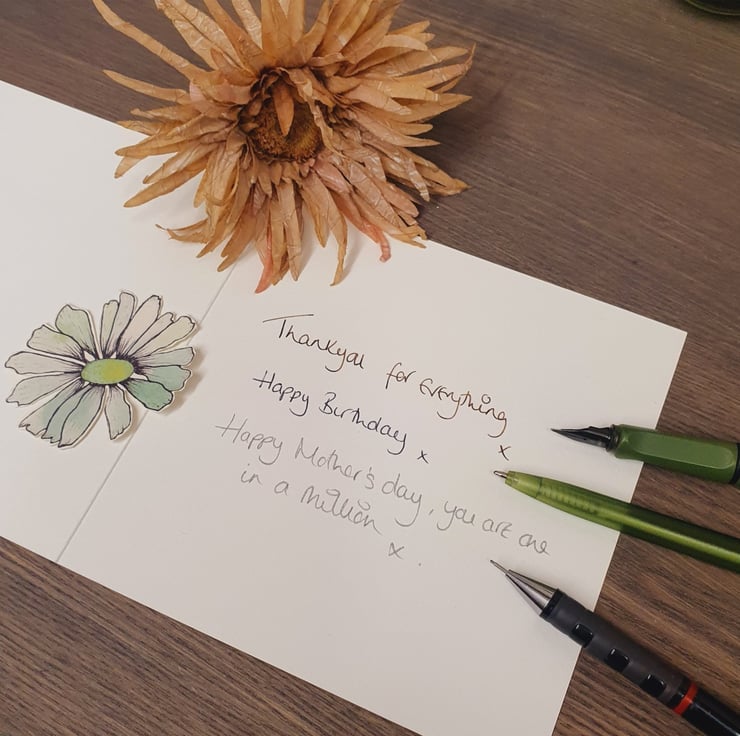 Thankyou for Everything
x
Happy Birthday x
Happy Mother's day, you are one
in a million
x.